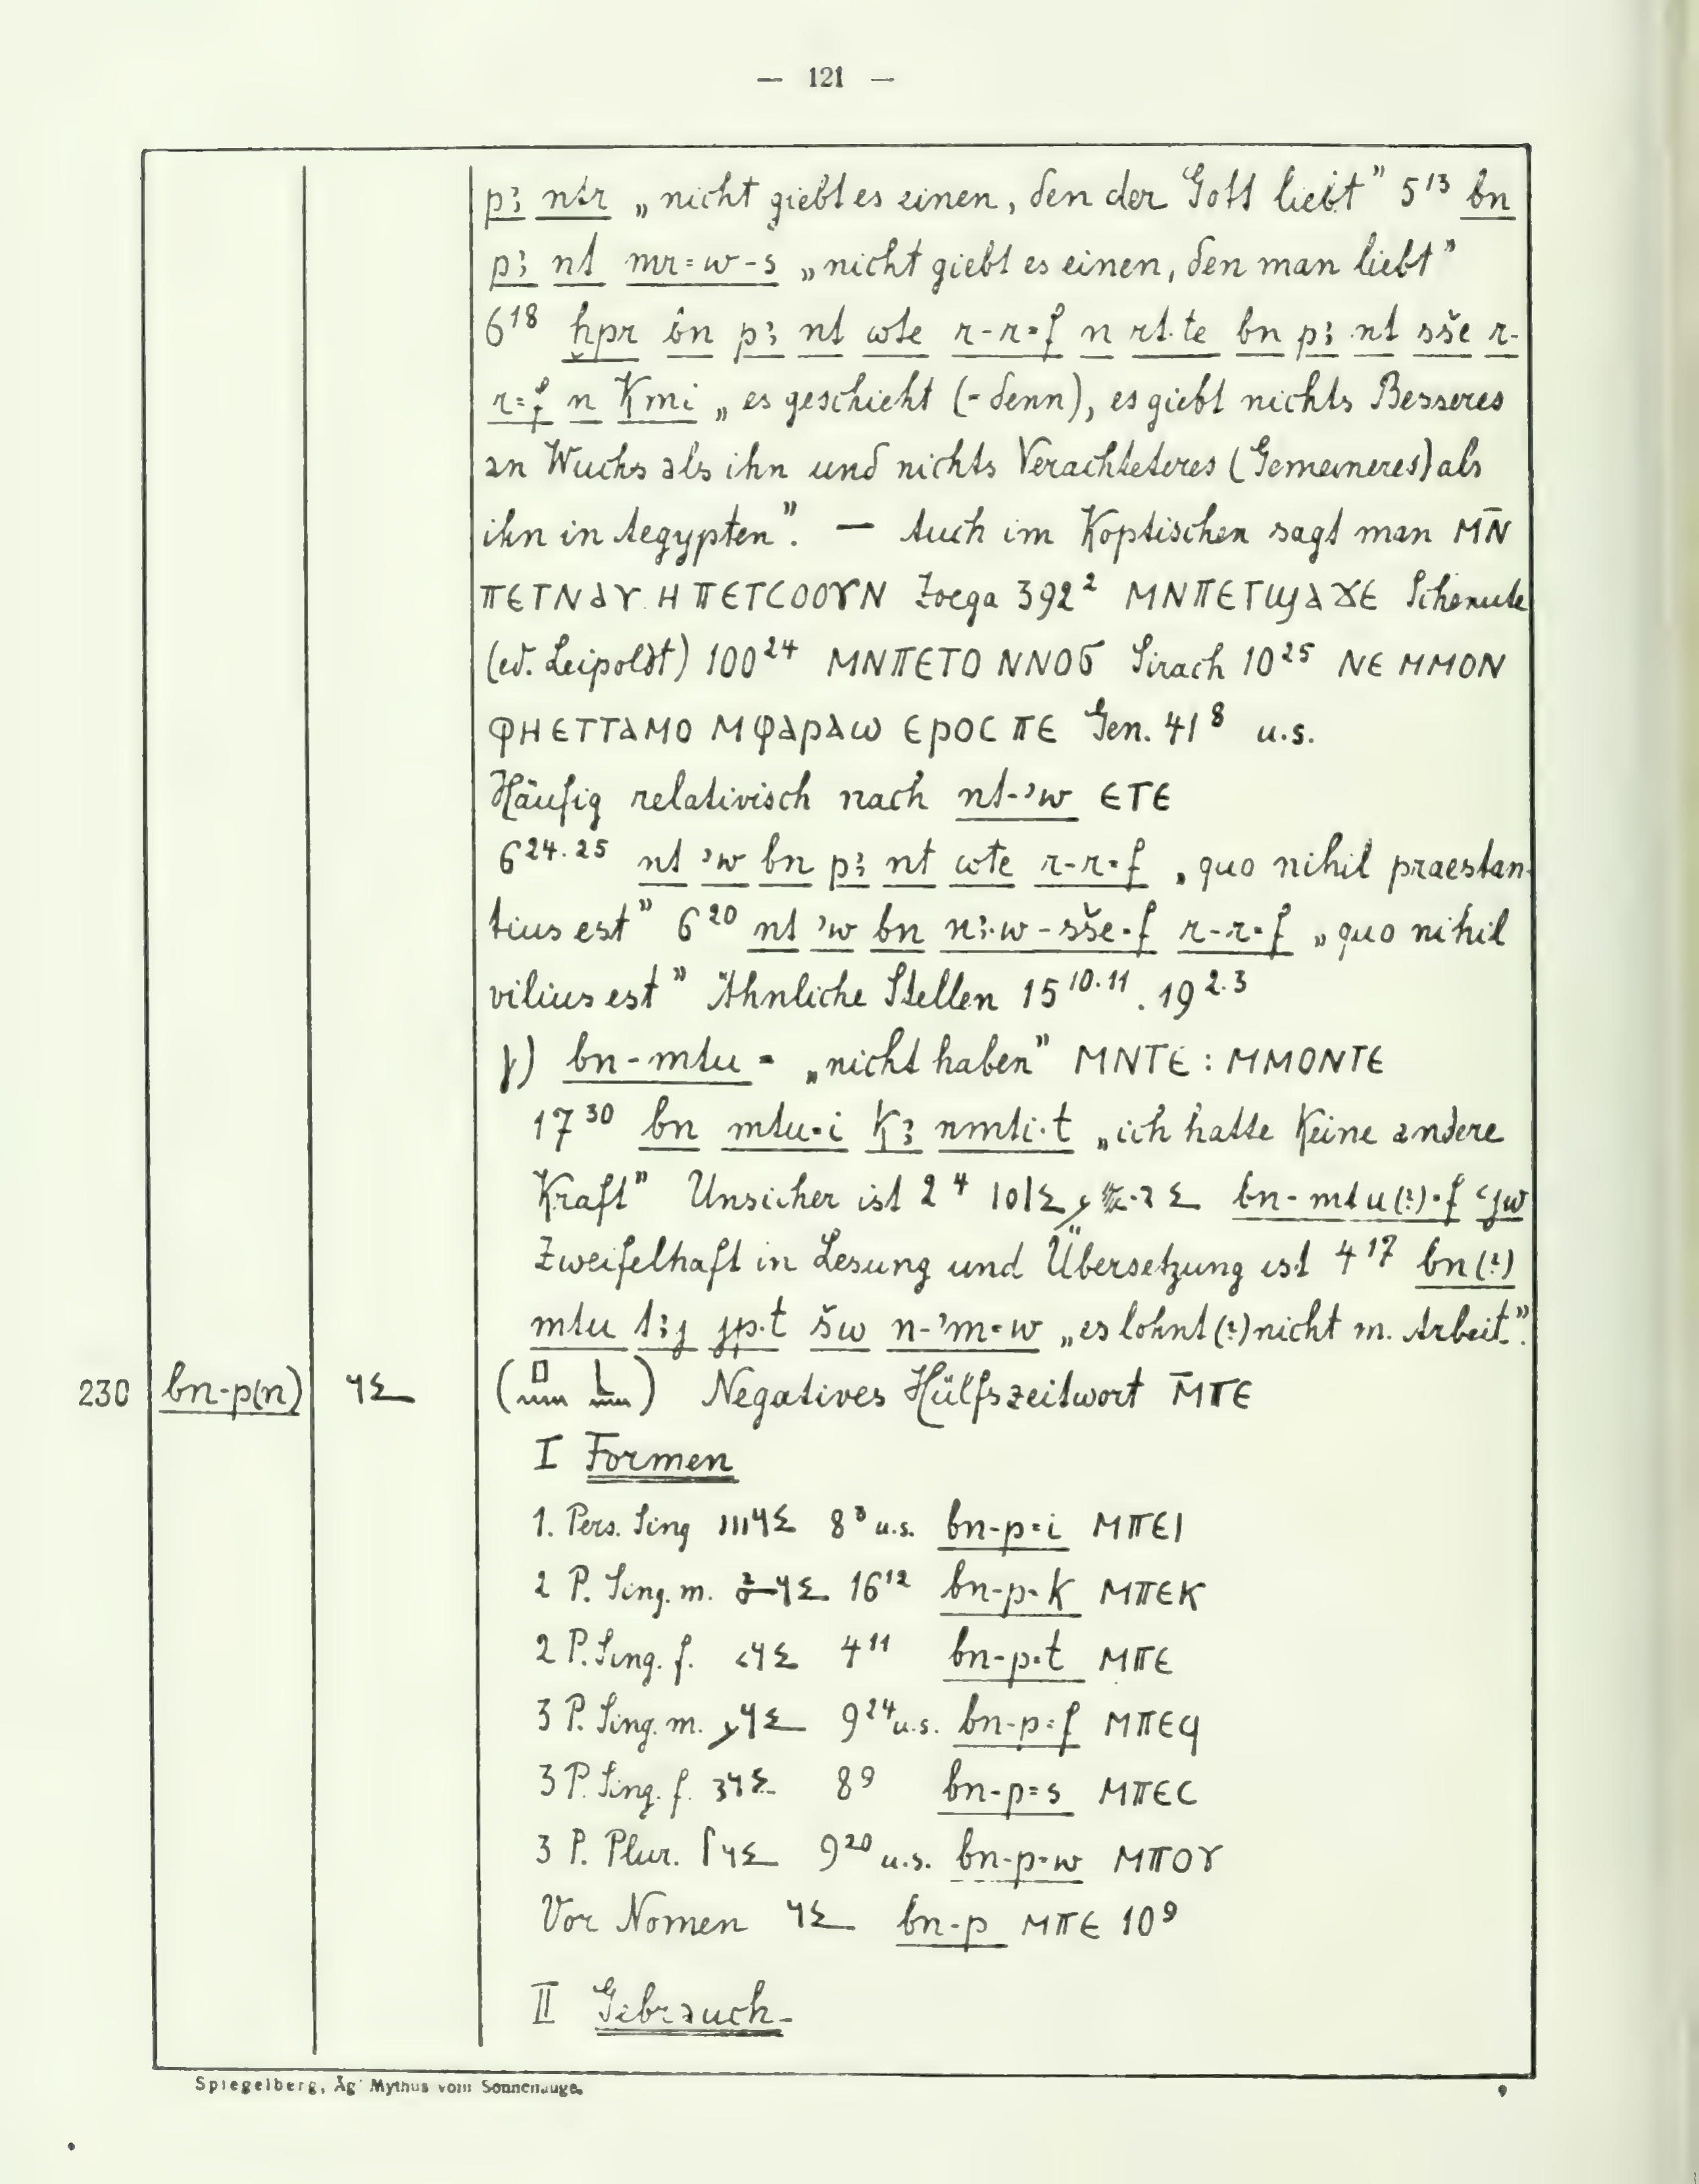 — 121 —
pꜣ ntr „nicht giebt es einen, den der Gott liebt” 5¹³ bn
pꜣ nt mr=w-s „nicht giebt es einen, den man liebt”
6¹⁸ ḫpr bn pꜣ nt wte r-r=f n rt.te bn pꜣ nt sše r-
r=f n Kmi „es geschieht (=denn), es giebt nichts Besseres
an Wuchs als ihn und nichts Verachteteres (Gemeineres) als
ihn in Aegypten”. — Auch im Koptischen sagt man ⲘⲚ̄
ⲠⲈⲦⲚⲀⲨ Ⲏ ⲠⲈⲦⲤⲞⲞⲨⲚ Zoega 392² ⲘⲚⲠⲈⲦϢⲀϪⲈ Schenute
(ed. Leipoldt) 100²⁴ ⲘⲚⲠⲈⲦⲞ ⲚⲚⲞϬ Sirach 10²⁵ ⲚⲈ ⲘⲘⲞⲚ
ⲪⲎⲈⲦⲦⲀⲘⲞ ⲘⲪⲀⲢⲀⲰ ⲈⲢⲞⲤ ⲠⲈ Gen. 41⁸ u.s.
Häufig relativisch nach nt-ʾw ⲈⲦⲈ
6²⁴·²⁵ nt ʾw bn pꜣ nt wte r-r=f „quo nihil praestan-
tius est” 6²⁰ nt ʾw bn nꜣ.w-sše=f r-r=f „quo nihil
vilius est” Ähnliche Stellen 15¹⁰·¹¹. 19²·³
γ) bn-mtu= „nicht haben” ⲘⲚⲦⲈ : ⲘⲘⲞⲚⲦⲈ
17³⁰ bn mtu=i kꜣ nmti.t „ich hatte keine andere
Kraft” Unsicher ist 2⁴ bn-mtu(?)=f ꜥjw
Zweifelhaft in Lesung und Übersetzung ist 4¹⁷ bn(?)
mtu tꜣj jp.t šw n-ʾm=w „es lohnt(?) nicht m. Arbeit.”
230 bn-p(n) ( ) Negatives Hülfszeitwort Ⲙ̄ⲠⲈ
I Formen
1. Pers. Sing 8³ u.s. bn-p=i ⲘⲠⲈⲒ
2 P. Sing. m. 16¹² bn-p=k ⲘⲠⲈⲔ
2 P. Sing. f. 4¹¹ bn-p=t ⲘⲠⲈ
3 P. Sing. m. 9²⁴ u.s. bn-p=f ⲘⲠⲈϤ
3 P. Sing. f. 8⁹ bn-p=s ⲘⲠⲈⲤ
3 P. Plur. 9²⁰ u.s. bn-p=w ⲘⲠⲞⲨ
Vor Nomen bn-p ⲘⲠⲈ 10⁹
II Gebrauch-
Spiegelberg, Äg. Mythus vom Sonnenauge.
9